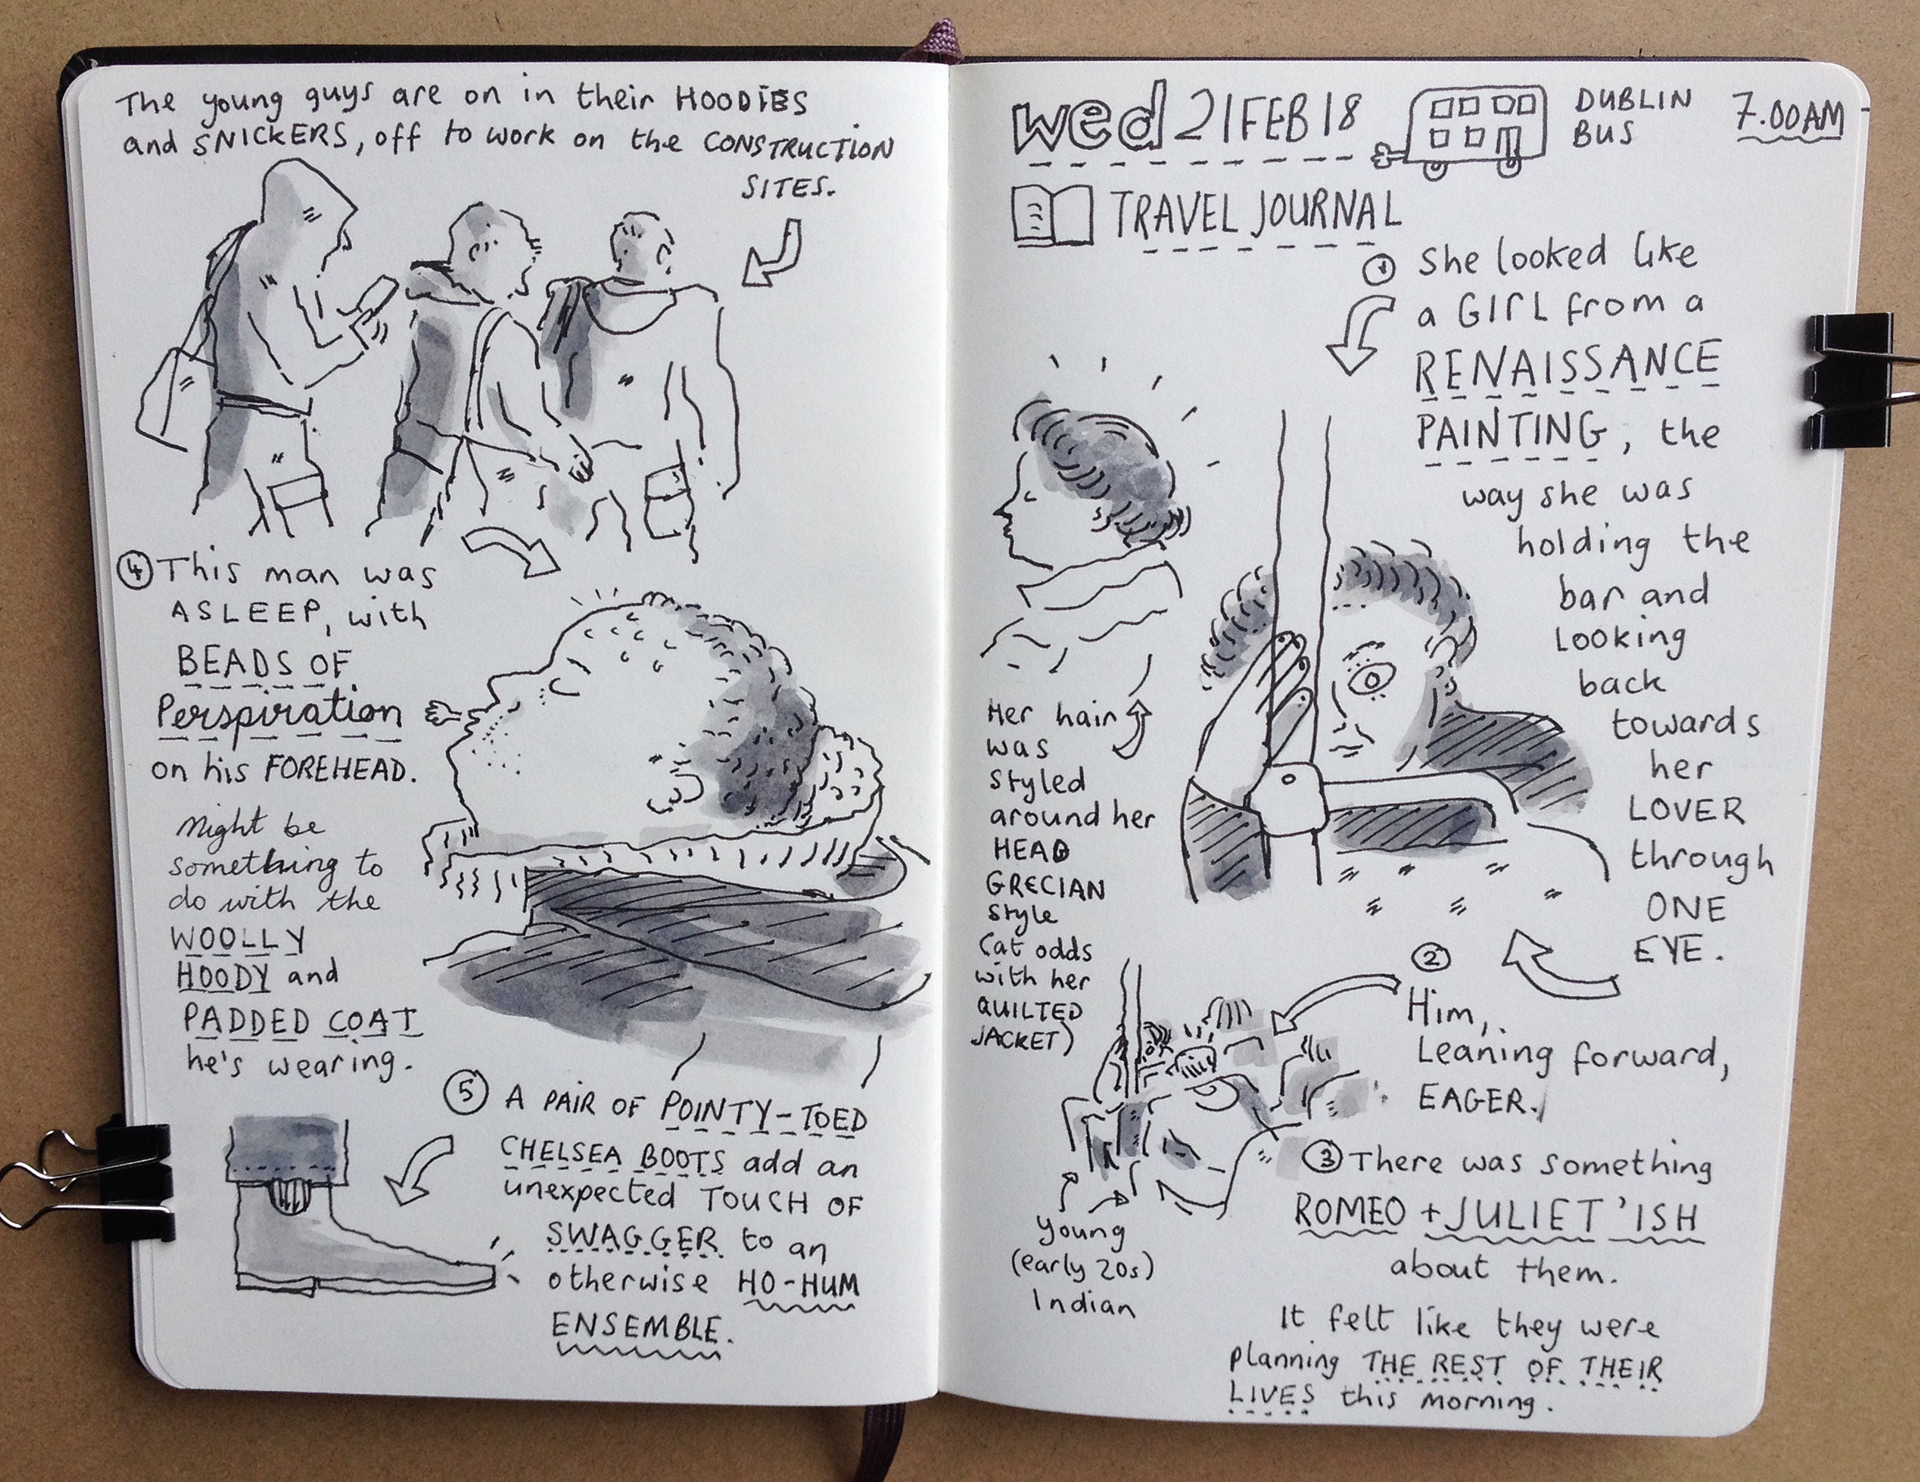 The young guys are on in their HOODIES
and SNICKERS, off to work on the CONSTRUCTION
SITES.
④ This man was
ASLEEP, with
BEADS OF
Perspiration
on his FOREHEAD.
Might be
something to
do with the
WOOLLY
HOODY and
PADDED COAT
he's wearing.
⑤ A PAIR OF POINTY-TOED
CHELSEA BOOTS add an
unexpected TOUCH OF
SWAGGER to an
otherwise HO-HUM
ENSEMBLE.
wed 21 FEB 18
DUBLIN
BUS
7.00AM
TRAVEL JOURNAL
① She looked like
a GIRL from a
RENAISSANCE
PAINTING, the
way she was
holding the
bar and
looking
back
towards
her
LOVER
through
ONE
EYE.
Her hair
was
styled
around her
HEAD
GRECIAN
style
(at odds
with her
QUILTED
JACKET)
②
Him,
Leaning forward,
EAGER.
③ There was something
ROMEO + JULIET 'ISH
about them.
young
(early 20s)
Indian
It felt like they were
planning THE REST OF THEIR
LIVES this morning.